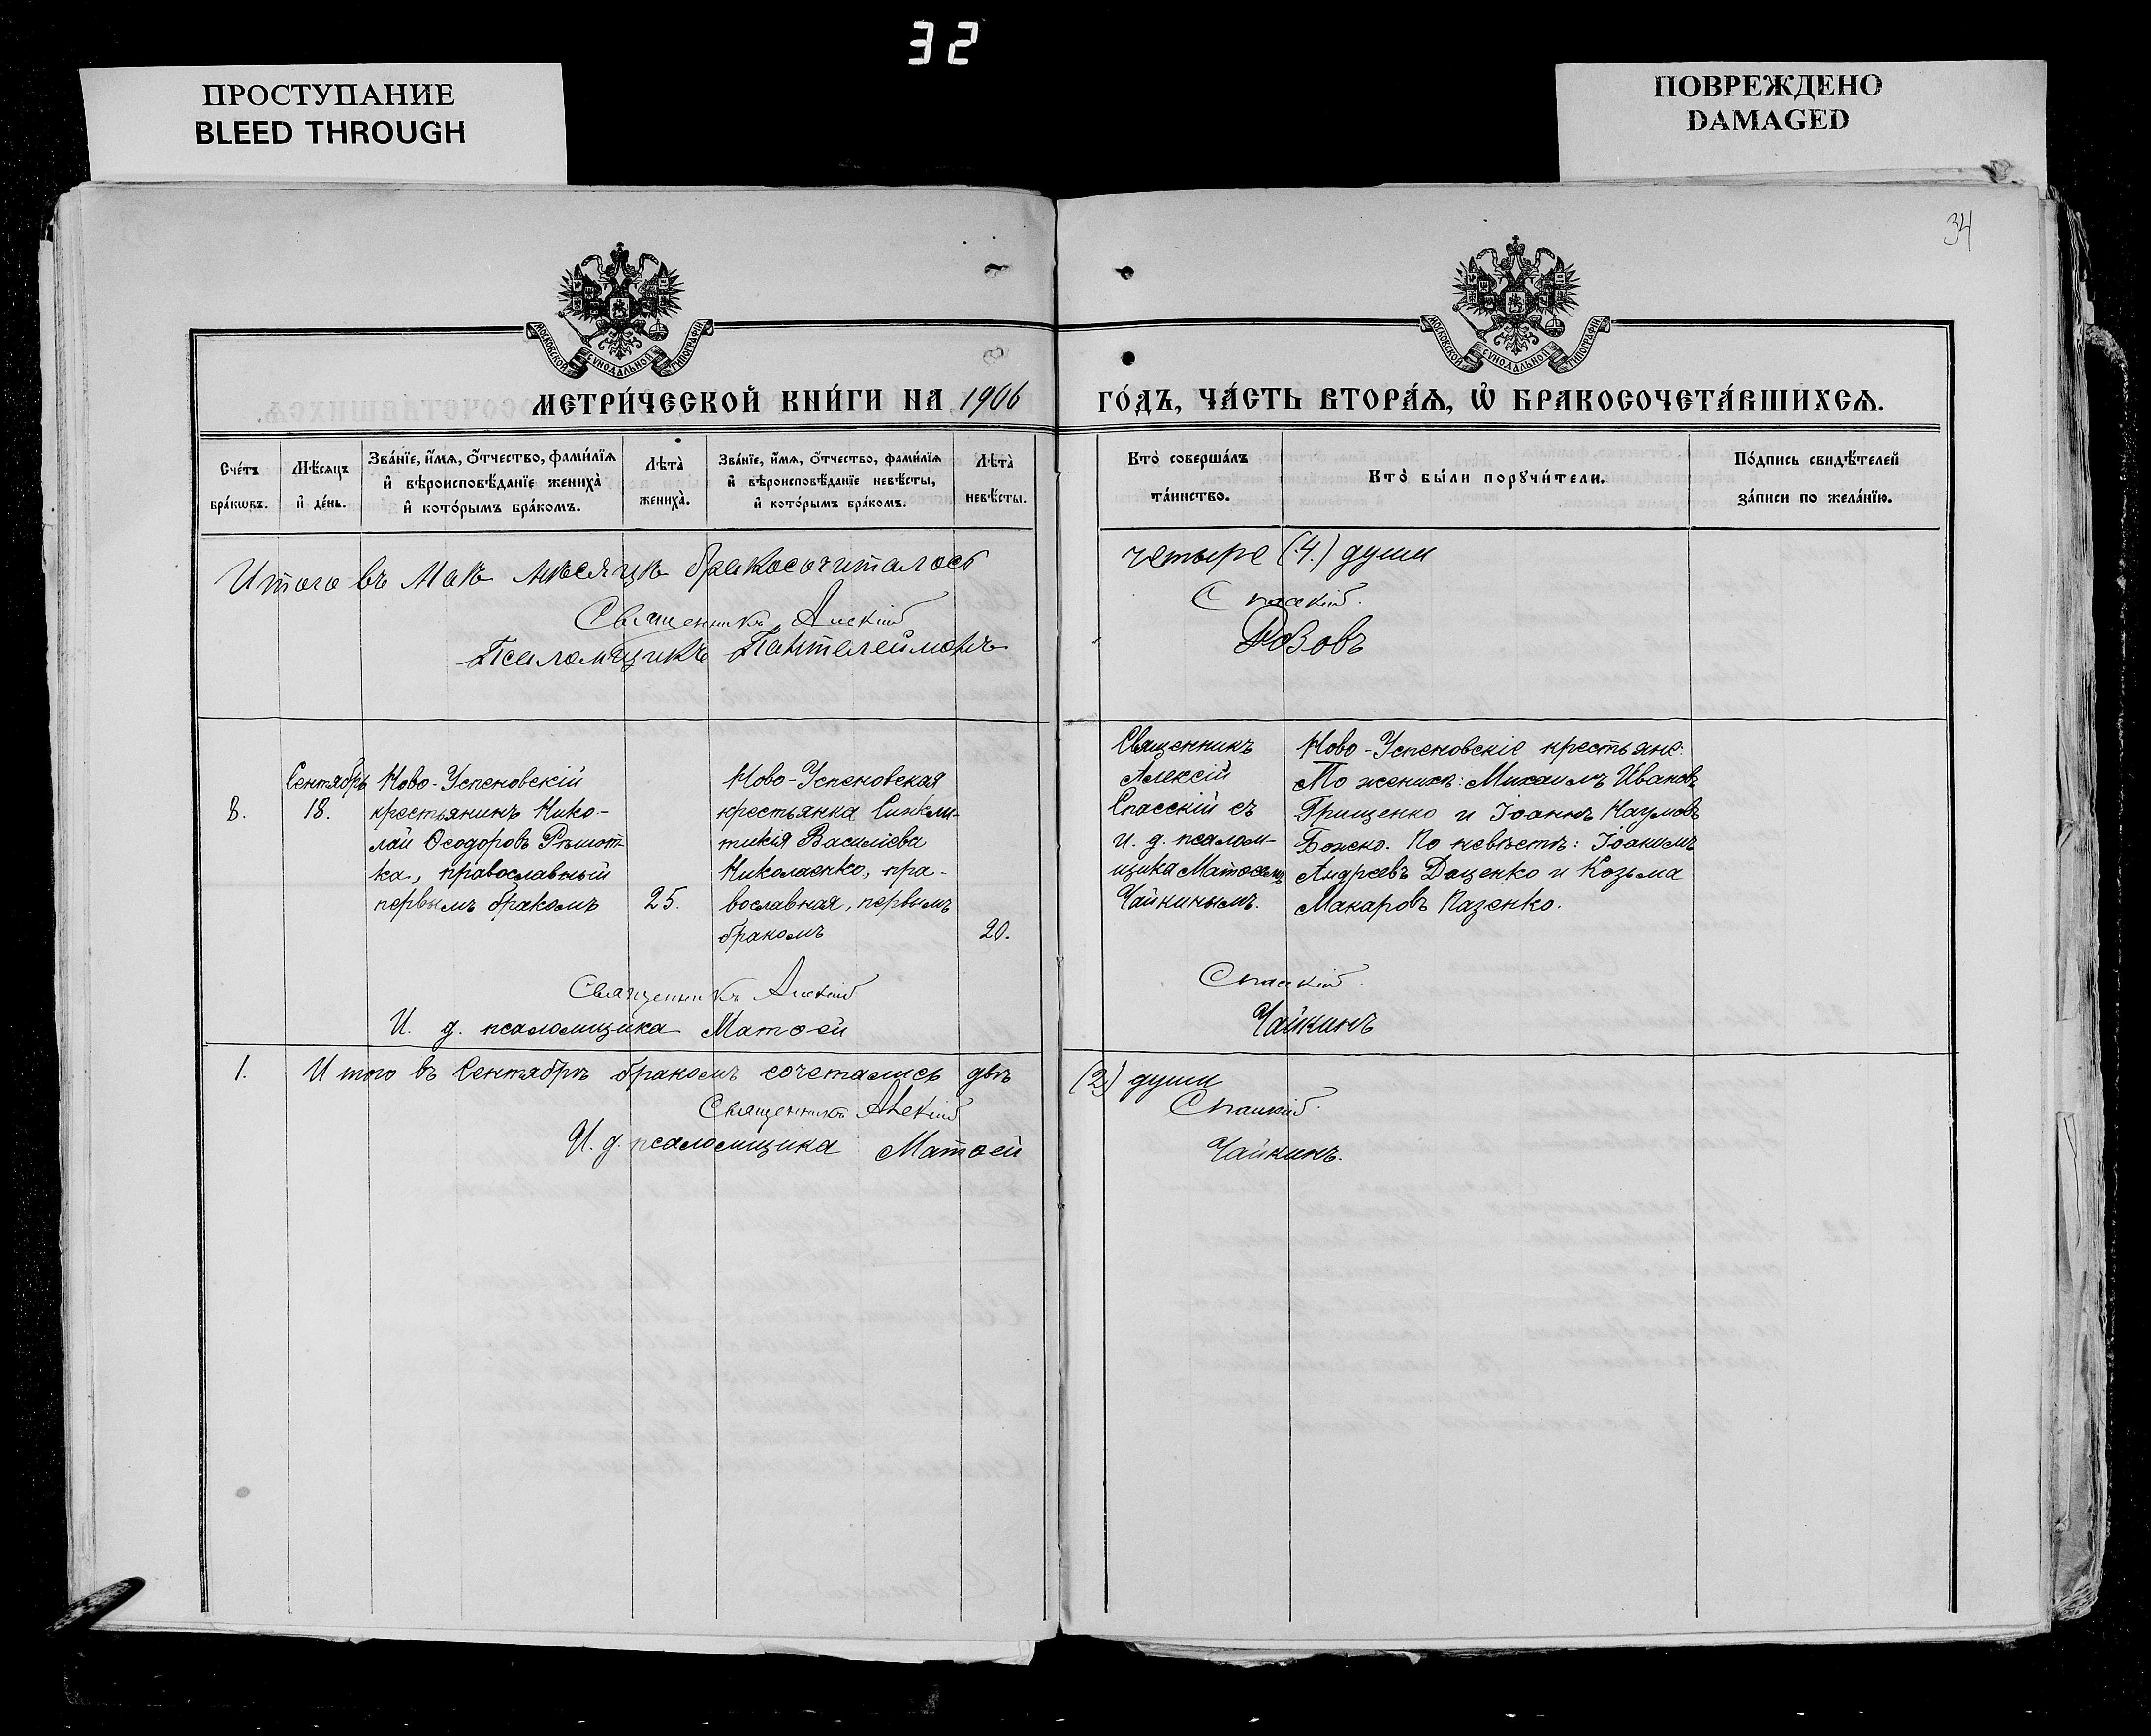 32
ПРОСТУПАНИЕ
BLEED THROUGH
ПОВРЕЖДЕНО
DAMAGED
34
МОСКОВСКОЙ СѴНОДАЛЬНОЙ ТИПОГРАФІИ
МОСКОВСКОЙ СѴНОДАЛЬНОЙ ТИПОГРАФІИ
МЕТРИ́ЧЕСКОЙ КНИ́ГИ НА 1906
ГО́ДЪ, ЧА́СТЬ ВТОРА́Ѧ, Ѡ҆ БРАКОСОЧЕТА́ВШИХСѦ.
Сче́тъ
бра́кѡвъ.
Мѣ́сѧцъ
и҆ де́нь.
Зва́нїе, и҆́мѧ, ѻ҆́тчество, фами́лїѧ
и҆ вѣроисповѣ́данїе жениха̀
и҆ кото́рымъ бра́комъ.
Лѣта̀
жениха̀.
Зва́нїе, и҆́мѧ, ѻ҆́тчество, фами́лїѧ
и҆ вѣроисповѣ́данїе невѣ́сты,
и҆ кото́рымъ бра́комъ.
Лѣта̀
невѣ́сты.
Кто̀ соверша́лъ
та́инство.
Кто̀ бы́ли порꙋчи́тели.
По́дпись свидѣ́телей
за́писи по жела́нїю.
Итого въ Маѣ мѣсяцѣ бракосочиталось
четыре (4.) души
Священникъ Алексій
Спасскій.
Псаломщикъ Пантелеймонъ
Розовъ
8.
Сентябрь
18.
Ново-Успеновскій
крестьянинъ Нико-
лай Ѳеодоровъ Рѣшот-
ка, православный
первымъ бракомъ
25.
Ново-Успеновская
крестьянка Синкли-
тикія Василіева
Николаенко, пра-
вославная, первымъ
бракомъ
20.
Священникъ
Алексій
Спасскій съ
и. д. псалом-
щика Матѳеемъ
Чайкинымъ.
Ново-Успеновскіе крестьяне:
По женихѣ: Михаилъ Ивановъ
Грищенко и Іоаннъ Наумовъ
Божко. По невѣстѣ: Іоакимъ
Андреевъ Даценко и Козьма
Макаровъ Пазенко.
Священникъ Алексій
Спасскій.
И. д. псаломщика Матѳей
Чайкинъ
1.
Итого въ Сентябрѣ бракомъ сочетались двѣ
(2) души
Священникъ Алексій
Спасскій.
И. д. псаломщика Матѳей
Чайкинъ.